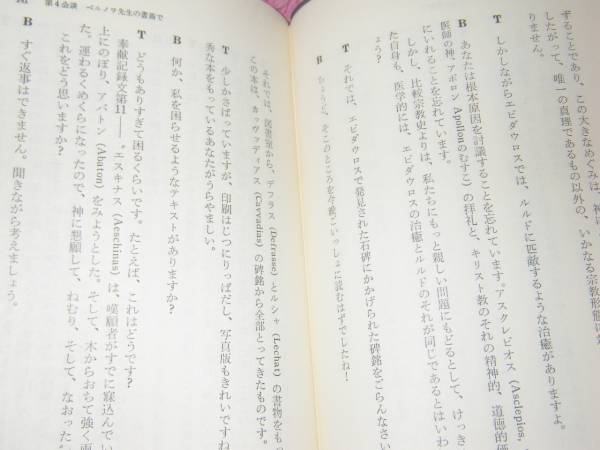 ずることであり、この大きなめぐみは、神
したがって、唯一の真理であるもの以外の、いかなる宗教形態に
りません。
T しかしながらエピダウロスでは、ルルドに匹敵するような治癒がありますよ。
B あなたは根本原因を討議することを忘れています。アスクレピオス(Asclepios,
医師の神、アポロン Apollonのむすこ)の拝礼と、キリスト教のそれの精神的、道徳的価
にいれることを忘れています。
しかし、比較宗教史よりは、私たちにもっと親しい問題にもどるとして、けっき
た自身も、医学的には、エピダウロスの治癒とルルドのそれが同じであるとはいわ
ょう?
T それでは、エピダウロスで発見された石碑にかかげられた碑銘をごらんなさい
B ちょうど、そこのところを今晩ごいっしょに読むはずでしたね!
第4会談 ペルノヲ先生の書斎で
それでは、図書室から、デフラス (Defrasse) とルシャ (Lechat) の書物をもっ
この本は、カッヴァディアス (Cavvadias) の碑銘から全部とってきたものです。
T 少しかさばっていますが、印刷はじつにりっぱだし、写真版もきれいですね
秀な本をもっているあなたがうらやましい。
B 何か、私を困らせるようなテキストがありますか?
T どうもありすぎて困るくらいです。たとえば、これはどうです?
奉献記録文第11――。エスキナス (Aeschinas) は、嘆願者がすでに寝込んでい
上にのぼり、アバトン (Abaton) をみようとした。そして、木からおちて強く両
た。運わるくめくらになったので、神に懇願して、ねむり、そして、なおった
これをどう思いますか?
B すぐ返事はできません。聞きながら考えましょう。